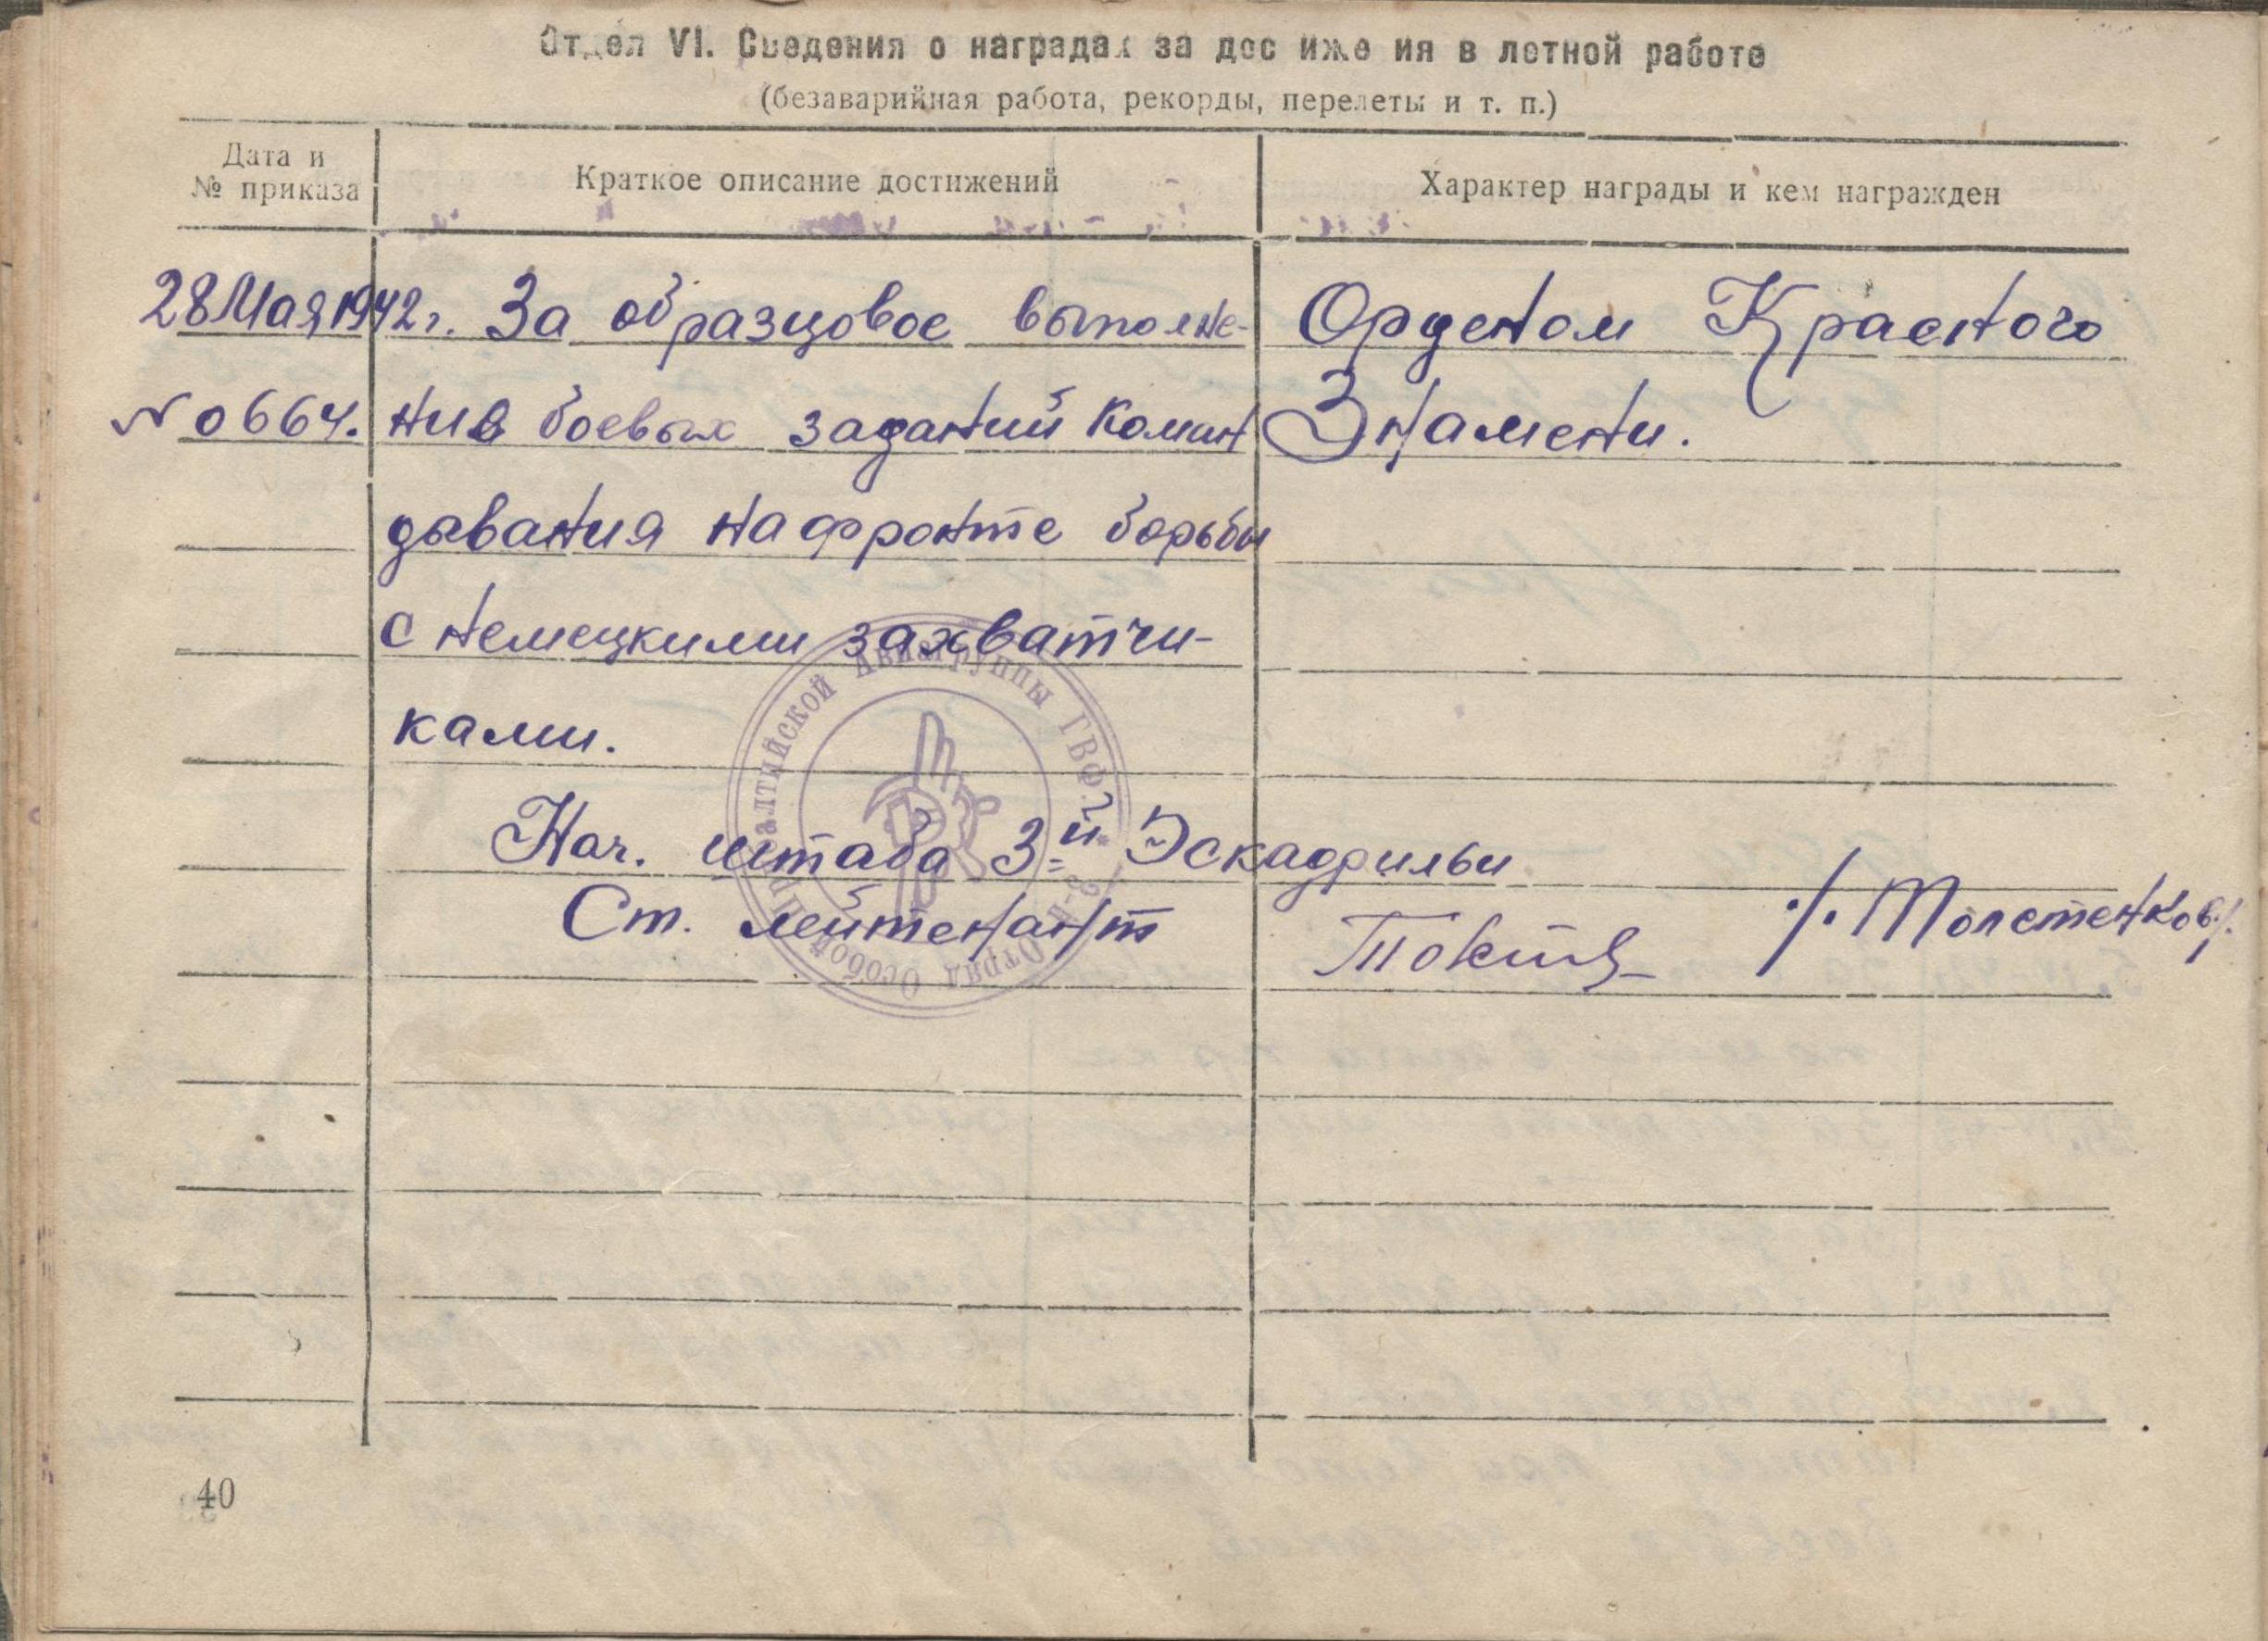 Отдел VI. Сведения о наградах за дос иже ия в летной работе
(безаварийная работа, рекорды, перелеты и т. п.)
Дата и № приказа
Краткое описание достижений
Характер награды и кем награжден
28 Мая 1942 г. За образцовое выполне- Орденом Красного
№ 0664. ние боевых заданий Коман Знамени.
дывания на фронте борьбы
с немецкими захватчи-
ками.
Нач. штаба 3-й Эскадрильи
Ст. лейтенант /. Толстенков/.
Отряд Особой Прибалтийской Авиагруппы ГВФ
40